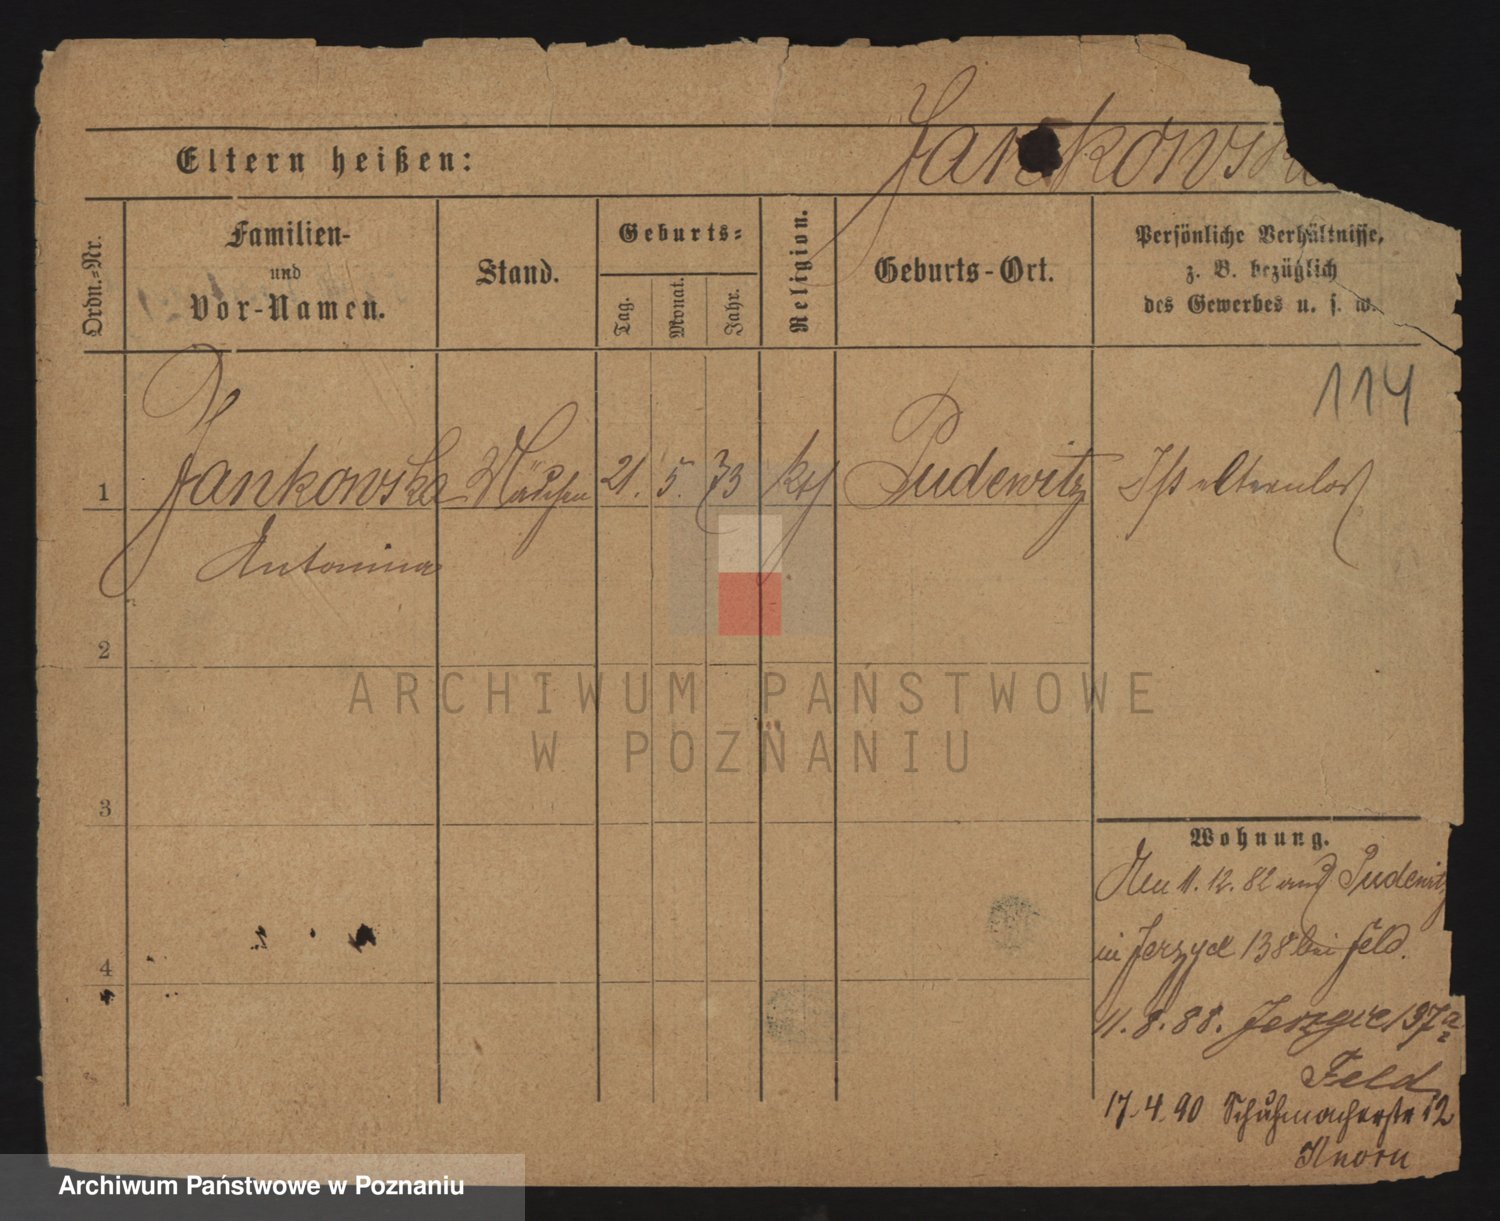 Jankowska
Eltern heißen:
Ordn.-Nr.
Familien-
und
Vor-Namen.
Stand.
Geburts-
Tag.
Monat.
Jahr.
Religion.
Geburts-Ort.
Persönliche Verhältnisse,
z. B. bezüglich
des Gewerbes u. s. w.
114
1 Jankowska Waise 21. 5. 73 kth Pudewitz Ist elternlos
Antonina
2
ARCHIWUM PAŃSTWOWE
W POZNANIU
3
Wohnung.
Am 11. 12. 82 aus Pudewitz
in Jerzyce 138 bei Feld.
4
11. 8. 88. Jerzyce 137a
Feld
17. 4. 90 Schuhmacherstr 12
Knorn
Archiwum Państwowe w Poznaniu